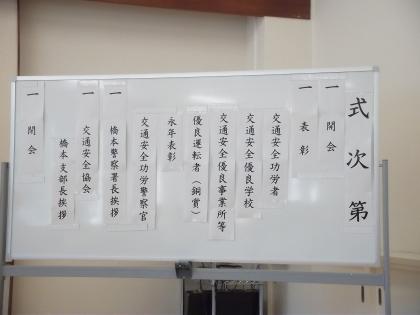 式次第
一 開会
一 表彰
交通安全功労者
交通安全優良学校
交通安全優良事業所等
優良運転者（銅賞）
永年表彰
交通安全功労警察官
一 橋本警察署長挨拶
一 交通安全協会
橋本支部長挨拶
一 閉会